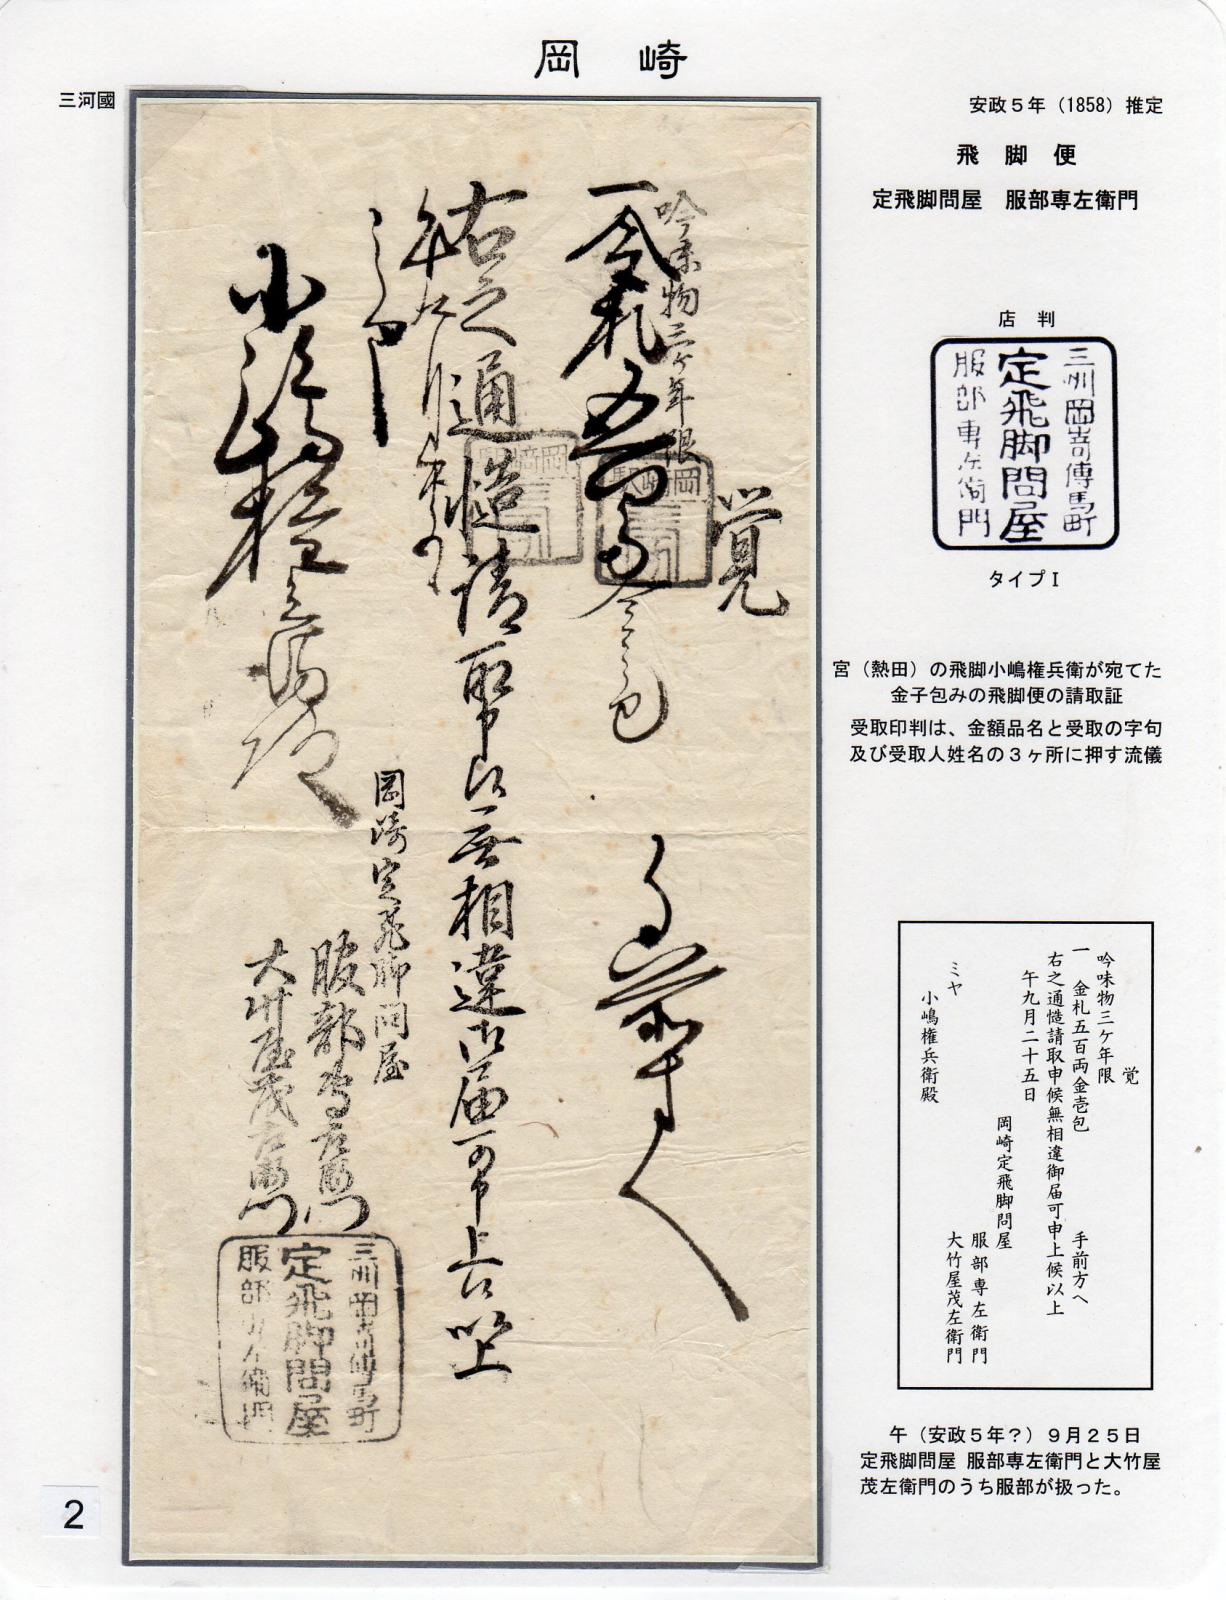 岡 崎
三河國
安政5年（1858）推定
飛 脚 便
定飛脚問屋　服部専左衛門
店 判
三州岡嵜傳馬町
定飛脚問屋
服部専左衛門
タイプⅠ
宮（熱田）の飛脚小嶋権兵衛が宛てた
金子包みの飛脚便の請取証
受取印判は、金額品名と受取の字句
及び受取人姓名の3ヶ所に押す流儀
覚
吟味物三ケ年限
一　金札五百両金壱包　手前方へ
右之通慥請取申候無相違御届可申上候以上
午九月二十五日
岡崎定飛脚問屋
服部専左衛門
大竹屋茂左衛門
ミヤ
小嶋権兵衛殿
午（安政5年?）9月25日
定飛脚問屋 服部専左衛門と大竹屋
茂左衛門のうち服部が扱った。
覚
吟味物三ケ年限
一金札五百両
右之通慥請取申候無相違御届可申上候以上
岡崎定飛脚問屋
服部専左衛門
大竹屋茂左衛門
三州岡嵜傳馬町
定飛脚問屋
服部専左衛門
2